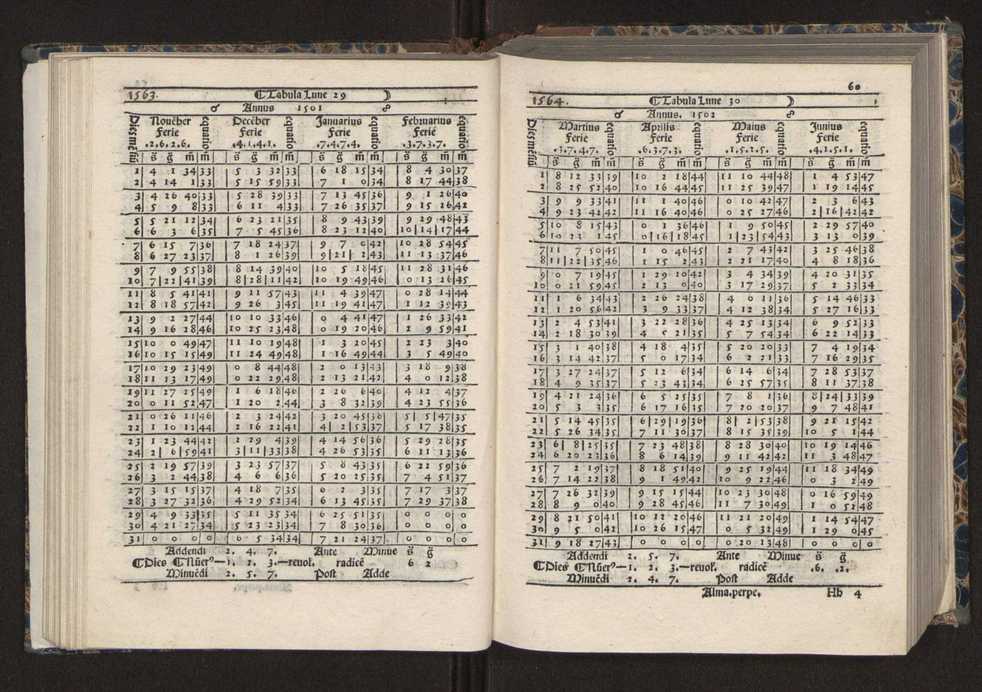 1563. ❡Tabula Lune 29 ☽
♂ Annus 1501 ☍
Dies mēsiū Nouēber equatio Decēber equatio Januarius equatio Februarius equatio
Ferie Ferie Ferie Ferie
.2.6.2.6. .4.1.4.1. .7.4.7.4. .3.7.3.7.
s̄ ḡ m̄ m̄ s̄ ḡ m̄ m̄ s̄ ḡ m̄ m̄ s̄ ḡ m̄ m̄
1 4 1 34 33 5 3 32 33 6 18 15 34 8 4 30 37
2 4 14 1 33 5 15 59 33 7 1 0 34 8 17 44 38
3 4 26 40 33 5 28 39 33 7 13 45 36 9 1 26 40
4 5 9 8 33 6 11 4 33 7 26 35 37 9 15 26 42
5 5 21 12 34 6 23 21 35 8 9 43 39 9 29 48 43
6 6 3 6 35 7 5 45 36 8 23 12 40 10 14 17 44
7 6 15 7 36 7 18 24 37 9 7 0 42 10 28 54 45
8 6 27 23 37 8 1 26 39 9 21 2 43 11 13 37 46
9 7 9 55 38 8 14 39 40 10 5 18 45 11 28 31 46
10 7 21 41 39 8 28 11 42 10 19 49 46 0 13 26 45
11 8 5 41 41 9 11 57 43 11 4 39 47 0 28 14 44
12 8 18 57 42 9 26 3 45 11 19 41 47 1 12 39 43
13 9 2 27 44 10 10 33 46 0 4 41 47 1 26 33 42
14 9 16 28 46 10 25 23 48 0 19 20 46 2 9 59 41
15 10 0 49 47 11 10 19 48 1 3 20 45 2 23 3 40
16 10 15 15 49 11 24 49 48 1 16 49 44 3 5 49 40
17 10 29 23 49 0 8 44 48 2 0 13 43 3 18 9 38
18 11 13 17 49 0 22 29 48 2 13 21 42 4 0 12 38
19 11 27 25 49 1 6 18 46 2 26 6 40 4 12 4 37
20 0 11 52 47 1 20 2 44 3 8 32 39 4 23 59 36
21 0 26 11 46 2 3 24 42 3 20 45 36 5 5 47 35
22 1 10 12 44 2 16 22 41 4 2 53 37 5 17 38 35
23 1 23 44 42 1 29 4 39 4 14 56 36 5 29 26 35
24 2 6 59 41 3 11 33 38 4 26 53 35 6 11 13 36
25 2 19 57 39 3 23 57 37 5 8 43 35 6 22 59 36
26 3 2 44 38 4 6 6 36 5 20 25 35 7 4 51 37
27 3 15 15 37 4 18 7 35 6 2 3 35 7 17 3 37
28 3 27 32 36 4 29 52 34 6 13 45 35 7 29 37 38
29 4 9 33 35 5 11 35 34 6 25 51 35 0 0 0 0
30 4 21 27 34 5 23 23 34 7 8 30 36 0 0 0 0
31 0 0 0 0 6 5 34 34 7 21 24 37 0 0 0 0
Addendi 2. 4. 7. Ante Minue s̄ ḡ
❡Dies ❡Nūer⁹—1. 2. 3.—reuol. radicē 6 2
Minuēdi 2. 5. 7. Post Adde
60
1564. ❡Tabula Lune 30 ☽
♂ Annus. 1502 ☍
Dies mēsiū Martius equatio Aprilis equatio Maius equatio Junius equatio
Ferie Ferie Ferie Ferie
.3.7.4.7. .6.3.7.3. .1.5.2.5. .4.1.5.1.
s̄ ḡ m̄ m̄ s̄ ḡ m̄ m̄ s̄ ḡ m̄ m̄ s̄ ḡ m̄ m̄
1 8 12 33 39 10 2 18 44 11 10 44 48 1 4 53 47
2 8 25 52 40 10 16 44 45 11 25 39 47 1 19 14 45
3 9 9 33 41 11 1 40 46 0 10 42 47 2 3 6 43
4 9 23 42 42 11 16 40 46 0 25 27 46 2 16 42 42
5 10 8 15 43 0 1 36 46 1 9 50 45 2 29 57 40
6 10 22 1 45 0 16 18 45 1 23 54 43 3 13 0 39
7 11 7 50 45 1 0 46 45 2 7 43 42 3 25 46 38
8 11 22 35 46 1 15 2 43 2 21 17 40 4 8 18 36
9 0 7 19 45 1 29 10 42 3 4 34 39 4 20 31 35
10 0 21 59 45 2 13 0 40 3 17 29 37 5 2 33 34
11 1 6 34 43 2 26 24 38 4 0 11 36 5 14 46 33
12 1 20 56 42 3 9 33 37 4 12 38 34 5 27 16 33
13 2 4 53 41 3 22 28 36 4 25 13 34 6 9 52 33
14 2 18 30 39 4 5 21 35 5 7 54 34 6 22 14 33
15 3 1 40 38 4 18 4 35 5 20 20 33 7 4 19 34
16 3 14 42 37 5 0 17 34 6 2 21 33 7 16 29 35
17 3 27 24 37 5 12 6 34 6 14 6 34 7 28 53 37
18 4 9 35 37 5 23 43 34 6 25 57 35 8 11 37 38
19 4 21 24 36 6 5 25 35 7 8 1 36 8 24 33 39
20 5 3 3 35 6 17 16 35 7 20 20 37 9 7 48 41
21 5 14 45 35 6 29 19 36 8 2 53 38 9 21 15 42
22 5 26 34 35 7 11 30 37 8 15 35 39 10 5 1 44
23 6 8 25 35 7 23 48 38 8 28 30 40 10 19 14 46
24 6 20 23 36 8 6 14 39 9 11 42 42 11 3 48 47
25 7 2 19 37 8 18 51 40 9 25 19 44 11 18 34 49
26 7 14 22 38 9 1 49 42 10 9 22 46 0 3 2 49
27 7 26 32 39 9 15 15 44 10 23 30 48 0 16 59 49
28 8 9 0 40 9 28 45 46 11 7 30 49 1 0 51 48
29 8 21 50 41 10 12 20 46 11 21 20 49 1 14 54 47
30 9 5 0 43 10 26 15 47 0 5 31 49 1 29 0 45
31 9 18 27 43 0 0 0 0 0 20 13 48 0 0 0 0
Addendi 2. 5. 7. Ante Minue s̄ ḡ
❡Dies ❡Nūer⁹—1. 2. 3.—reuol. radicē .6. .2.
Minuēdi 2. 4. 7. Post Adde
Alma.perpe. Hh 4